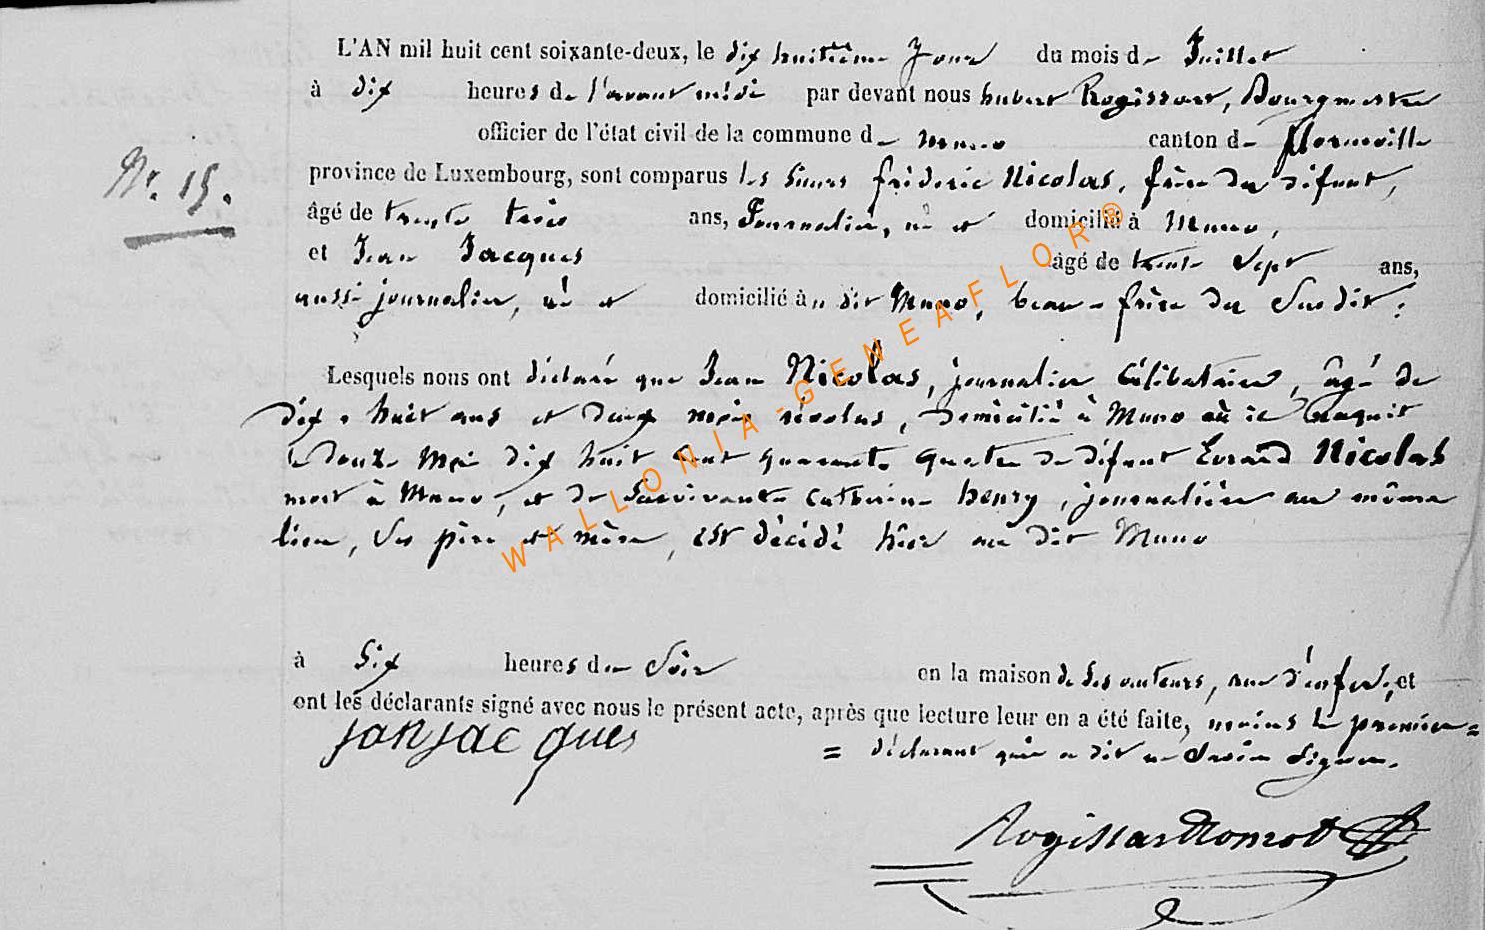 L'AN mil huit cent soixante-deux, le dix huitième jour du mois de Juillet
à dix heures de l'avant midi par devant nous hubert Rogissart, Bourgmestre
officier de l'état civil de la commune de Muno canton de florenville
Nr. 15.
province de Luxembourg, sont comparus les Sieurs fréderic Nicolas, frère du défunt,
âgé de trente trois ans, Journalier, né et domicilié à Muno,
et Jean Jacques âgé de trente Sept ans,
aussi journalier, né et domicilié au dit Muno, beau-frère du Susdit;
Lesquels nous ont déclaré que Jean Nicolas, journalier Célibataire, âgé de
dix-huit ans et deux mois révolus, domicilié à Muno où il naquit
le douze Mai dix huit cent quarante quatre de défunt Evrard Nicolas
mort à Muno, et de Survivante Catherine henry, journalière au même
lieu, Ses père et mère, est décédé hier au dit Muno
à Six heures du Soir en la maison de Ses auteurs, rue d'enfer, et
ont les déclarants signé avec nous le présent acte, après que lecture leur en a été faite, moins le premier =
= déclarant qui a dit ne Savoir Signer.
janjac ques
Rogissart
WALLONIA-GENEAFLOR®